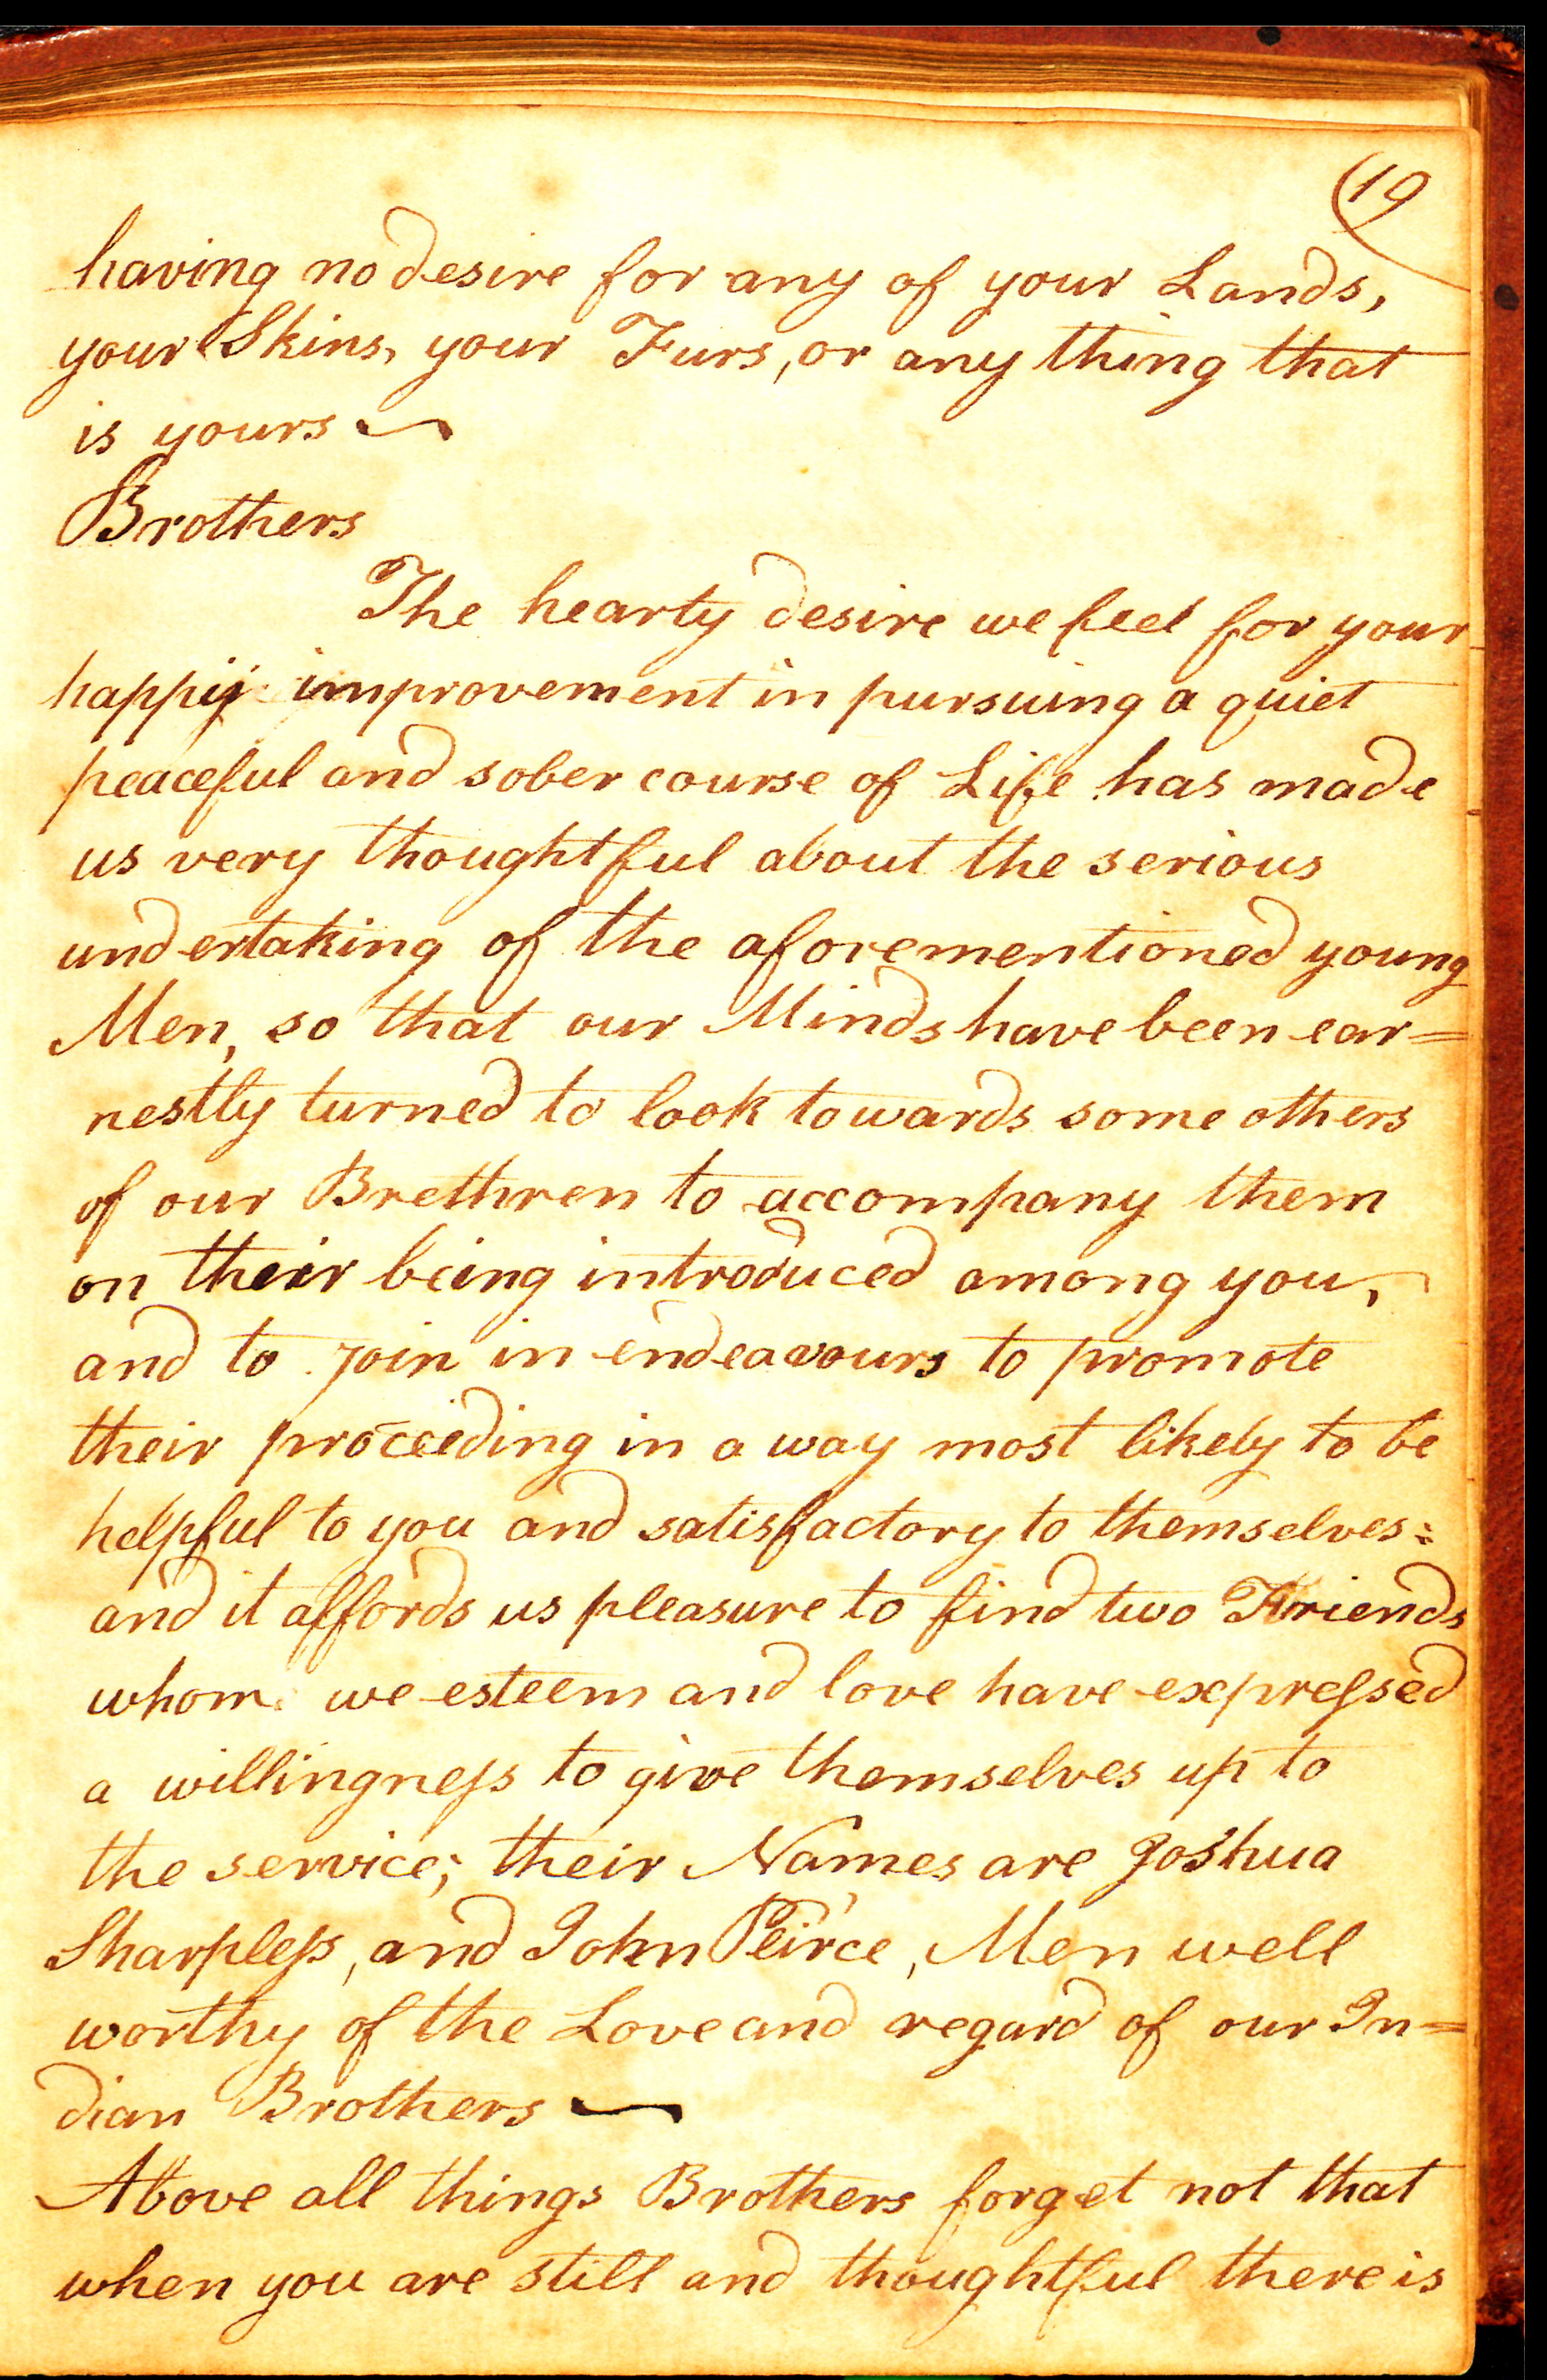 (19
having no desire for any of your Lands,
your Skins, your Furs, or any thing that
is yours
Brothers
The hearty desire we feel for your
happy improvement in pursuing a quiet
peaceful and sober course of Life has made
us very thoughtful about the serious
undertaking of the aforementioned young
Men, so that our Minds have been ear=
nestly turned to look towards some others
of our Brethren to accompany them
on their being introduced among you,
and to join in endeavours to promote
their proceeding in a way most likely to be
helpful to you and satisfactory to themselves:
and it affords us pleasure to find two Friends
whom we esteem and love have expreſsed
a willingneſs to give themselves up to
the service; their Names are Joshua
Sharpleſs, and John Peirce, Men well
worthy of the Love and regard of our In=
dian Brothers
Above all things Brothers forget not that
when you are still and thoughtful there is